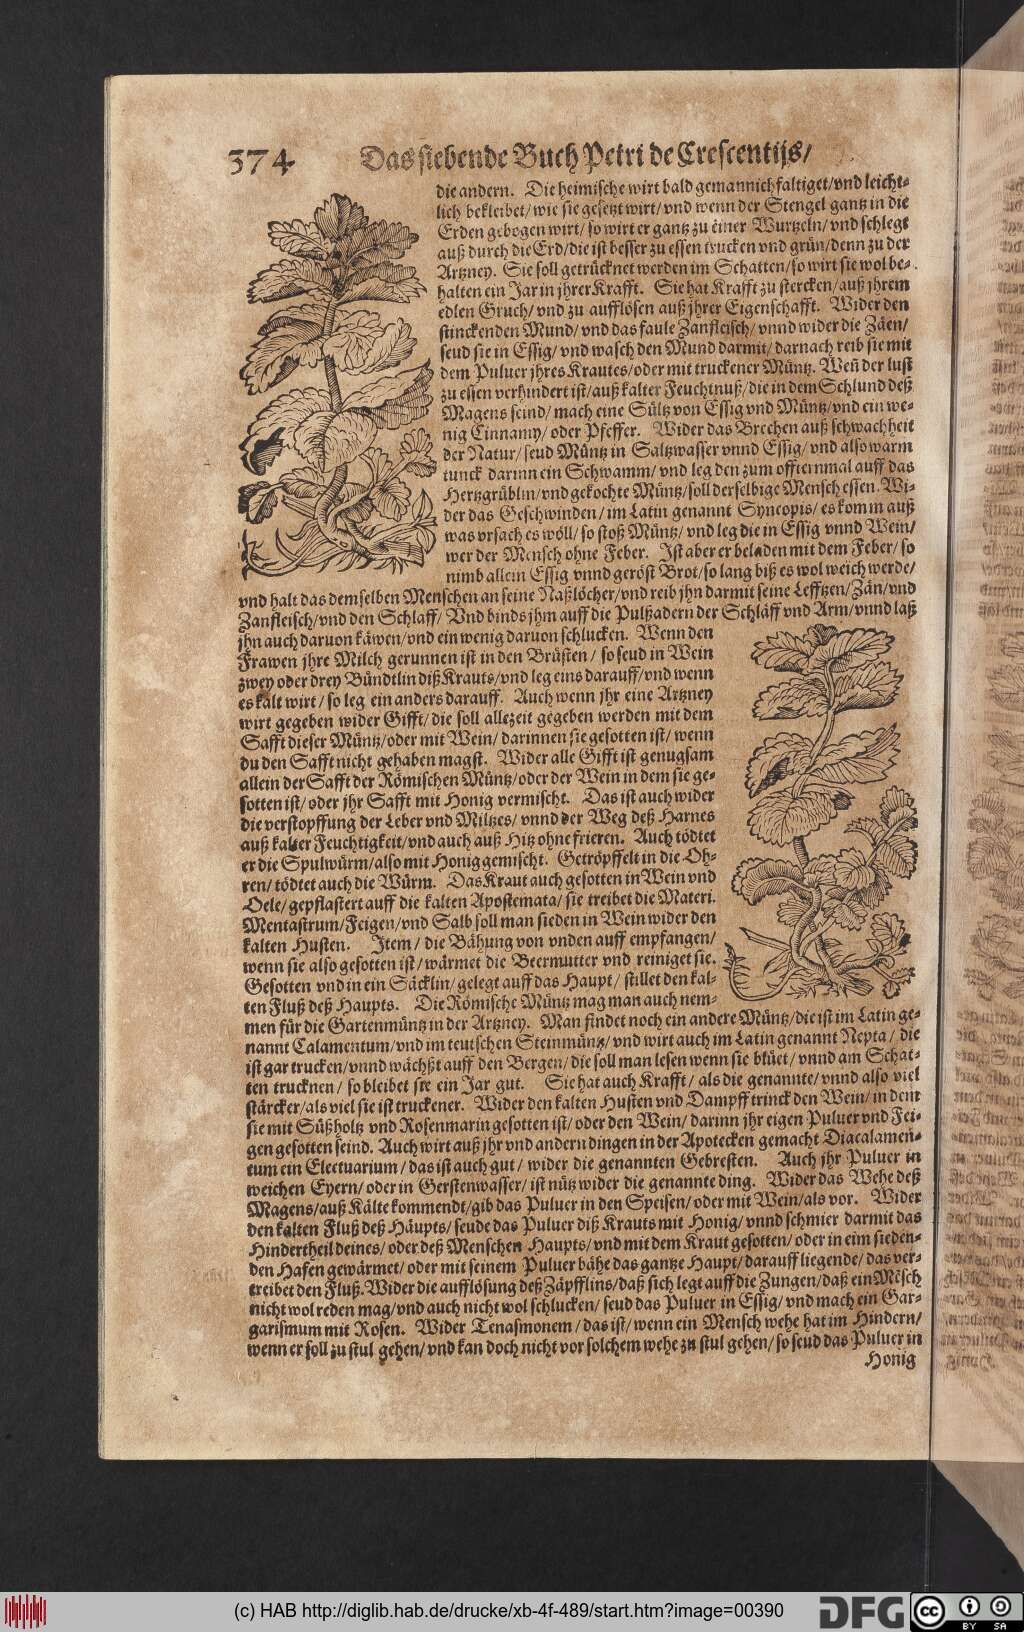 374 Das siebende Buch Petri de Crescentijs/
die andern. Die heimische wirt bald gemannichfaltiget/vnd leicht⸗
lich bekleibet/wie sie gesetzt wirt/vnd wenn der Stengel gantz in die
Erden gebogen wirt/so wirt er gantz zu einer Wurtzeln/vnd schlegt
auß durch die Erd/die ist besser zu essen trucken vnd grün/denn zu der
Artzney. Sie soll getrücknet werden im Schatten/so wirt sie wol be⸗
halten ein Jar in jhrer Krafft. Sie hat Krafft zu stercken/auß jhrem
edlen Gruch/vnd zu aufflösen auß jhrer Eigenschafft. Wider den
stinckenden Mund/vnd das faule Zanfleisch/vnnd wider die Zäen/
seud sie in Essig/vnd wasch den Mund darmit/darnach reib sie mit
dem Puluer jhres Krautes/oder mit truckener Müntz. Weñ der lust
zu essen verhindert ist/auß kalter Feuchtnuß/die in dem Schlund deß
Magens seind/mach eine Sültz von Essig vnd Müntz/vnd ein we⸗
nig Cinnamy/oder Pfeffer. Wider das Brechen auß schwachheit
der Natur/seud Müntz in Saltzwasser vnnd Essig/vnd also warm
tunck darinn ein Schwamm/vnd leg den zum offternmal auff das
Hertzgrüblin/vnd gekochte Müntz/soll derselbige Mensch essen. Wi⸗
der das Geschwinden/im Latin genannt Syncopis/es komm auß
was vrsach es wöll/so stoß Müntz/vnd leg die in Essig vnnd Wein/
wer der Mensch ohne Feber. Ist aber er beladen mit dem Feber/so
nimb allein Essig vnnd geröst Brot/so lang biß es wol weich werde/
vnd halt das demselben Menschen an seine Naßlöcher/vnd reib jhn darmit seine Lefftzen/Zän/vnd
Zanfleisch/vnd den Schlaff/Vnd binds jhm auff die Pulßadern der Schläff vnd Arm/vnnd laß
jhn auch daruon käwen/vnd ein wenig daruon schlucken. Wenn den
Frawen jhre Milch gerunnen ist in den Brüsten/so seud in Wein
zwey oder drey Bündtlin diß Krauts/vnd leg eins darauff/vnd wenn
es kalt wirt/so leg ein anders darauff. Auch wenn jhr eine Artzney
wirt gegeben wider Gifft/die soll allezeit gegeben werden mit dem
Safft dieser Müntz/oder mit Wein/darinnen sie gesotten ist/wenn
du den Safft nicht gehaben magst. Wider alle Gifft ist genugsam
allein der Safft der Römischen Müntz/oder der Wein in dem sie ge⸗
sotten ist/oder jhr Safft mit Honig vermischt. Das ist auch wider
die verstopffung der Leber vnd Miltzes/vnnd der Weg deß Harnes
auß kalter Feuchtigkeit/vnd auch auß Hitz ohne frieren. Auch tödtet
er die Spulwürm/also mit Honig gemischt. Getröpffelt in die Oh⸗
ren/tödtet auch die Würm. Das Kraut auch gesotten in Wein vnd
Oele/gepflastert auff die kalten Apostemata/sie treibet die Materi.
Mentastrum/Feigen/vnd Salb soll man sieden in Wein wider den
kalten Husten. Item/die Bähung von vnden auff empfangen/
wenn sie also gesotten ist/wärmet die Beermutter vnd reiniget sie.
Gesotten vnd in ein Säcklin/gelegt auff das Haupt/stillet den kal⸗
ten Fluß deß Haupts. Die Römische Müntz mag man auch nem⸗
men für die Gartenmüntz in der Artzney. Man findet noch ein andere Müntz/die ist im Latin ge⸗
nannt Calamentum/vnd im teutschen Steinmüntz/vnd wirt auch im Latin genannt Nepta/die
ist gar trucken/vnnd wächßt auff den Bergen/die soll man lesen wenn sie blüet/vnnd am Schat⸗
ten trucknen/so bleibet sie ein Jar gut. Sie hat auch Krafft/als die genannte/vnnd also viel
stärcker/als viel sie ist truckener. Wider den kalten Husten vnd Dampff trinck den Wein/in dem
sie mit Süßholtz vnd Rosenmarin gesotten ist/oder den Wein/darinn jhr eigen Puluer vnd Fei⸗
gen gesotten seind. Auch wirt auß jhr vnd andern dingen in der Apotecken gemacht Diacalamen⸗
tum ein Electuarium/das ist auch gut/wider die genannten Gebresten. Auch jhr Puluer in
weichen Eyern/oder in Gerstenwasser/ist nütz wider die genannte ding. Wider das Wehe deß
Magens/auß Kälte kommendt/gib das Puluer in den Speisen/oder mit Wein/als vor. Wider
den kalten Fluß deß Häupts/seude das Puluer diß Krauts mit Honig/vnnd schmier darmit das
Hindertheil deines/oder deß Menschen Haupts/vnd mit dem Kraut gesotten/oder in eim sieden⸗
den Hafen gewärmet/oder mit seinem Puluer bähe das gantze Haupt/darauff liegende/das ver⸗
treibet den Fluß. Wider die aufflösung deß Zäpfflins/daß sich legt auff die Zungen/daß ein Mēsch
nicht wol reden mag/vnd auch nicht wol schlucken/seud das Puluer in Essig/vnd mach ein Gar⸗
garismum mit Rosen. Wider Tenasmonem/das ist/wenn ein Mensch wehe hat im Hindern/
wenn er soll zu stul gehen/vnd kan doch nicht vor solchem wehe zu stul gehen/so seud das Puluer in
Honig
(c) HAB http://diglib.hab.de/drucke/xb-4f-489/start.htm?image=00390
DFG
cc BY SA